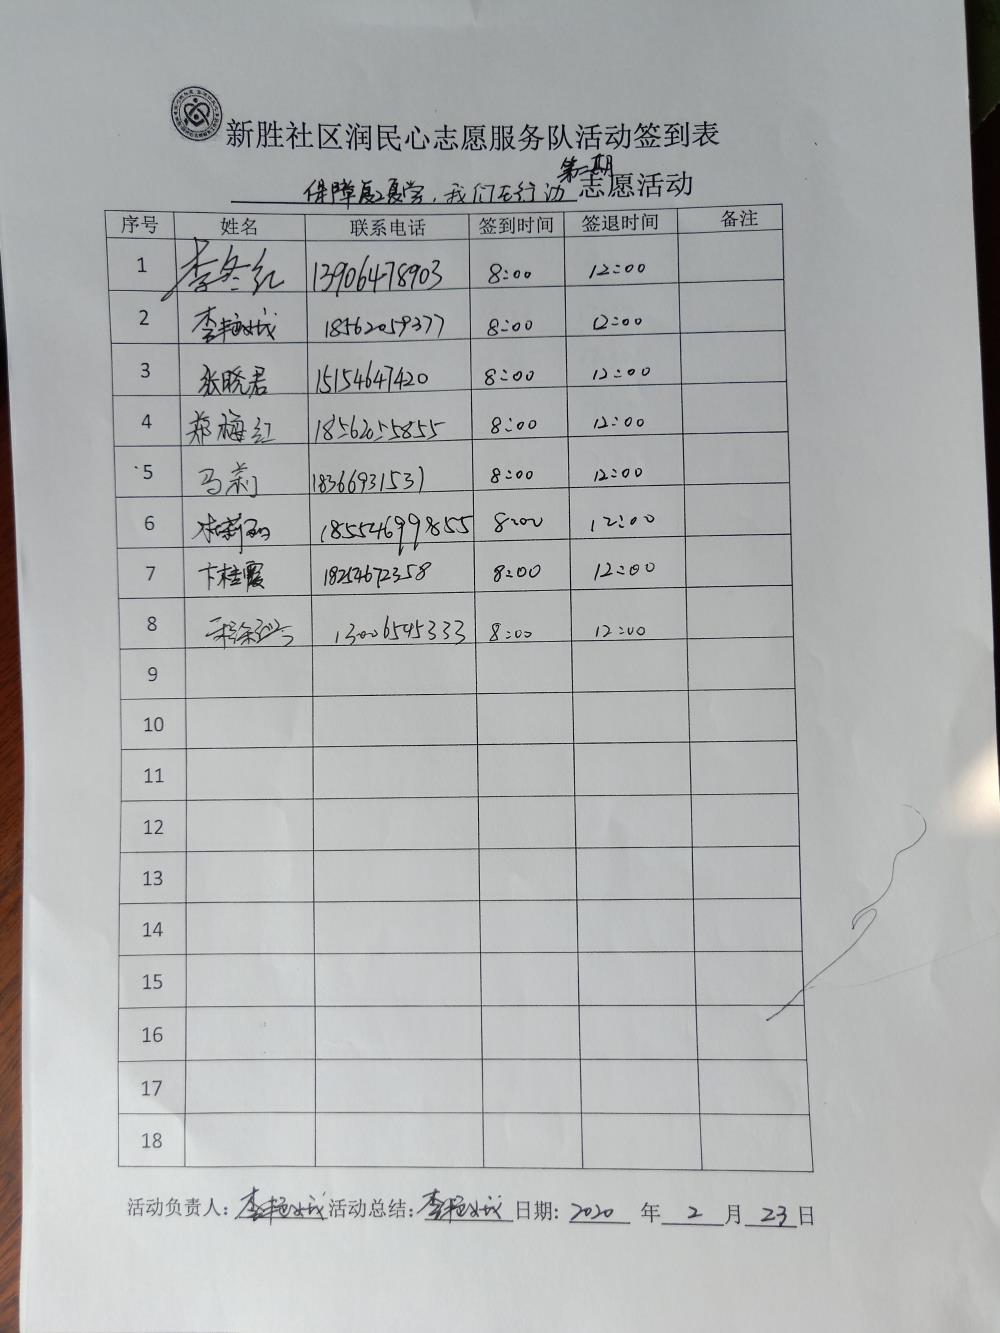 新胜社区润民心志愿服务队活动签到表
第二期
保障复工复学，我们在行动 志愿活动
序号 姓名 联系电话 签到时间 签退时间 备注
1 李冬红 13906478903 8:00 12:00
2 李艳城 18562059377 8:00 12:00
3 张晓君 15154647420 8:00 12:00
4 郑梅红 18562055855 8:00 12:00
5 马莉 18366931531 8:00 12:00
6 18554699855 8:00 12:00
7 卞桂霞 18254672358 8:00 12:00
8 13006545333 8:00 12:00
9
10
11
12
13
14
15
16
17
18
活动负责人：李艳城 活动总结：李艳城 日期：2020 年 2 月 23 日